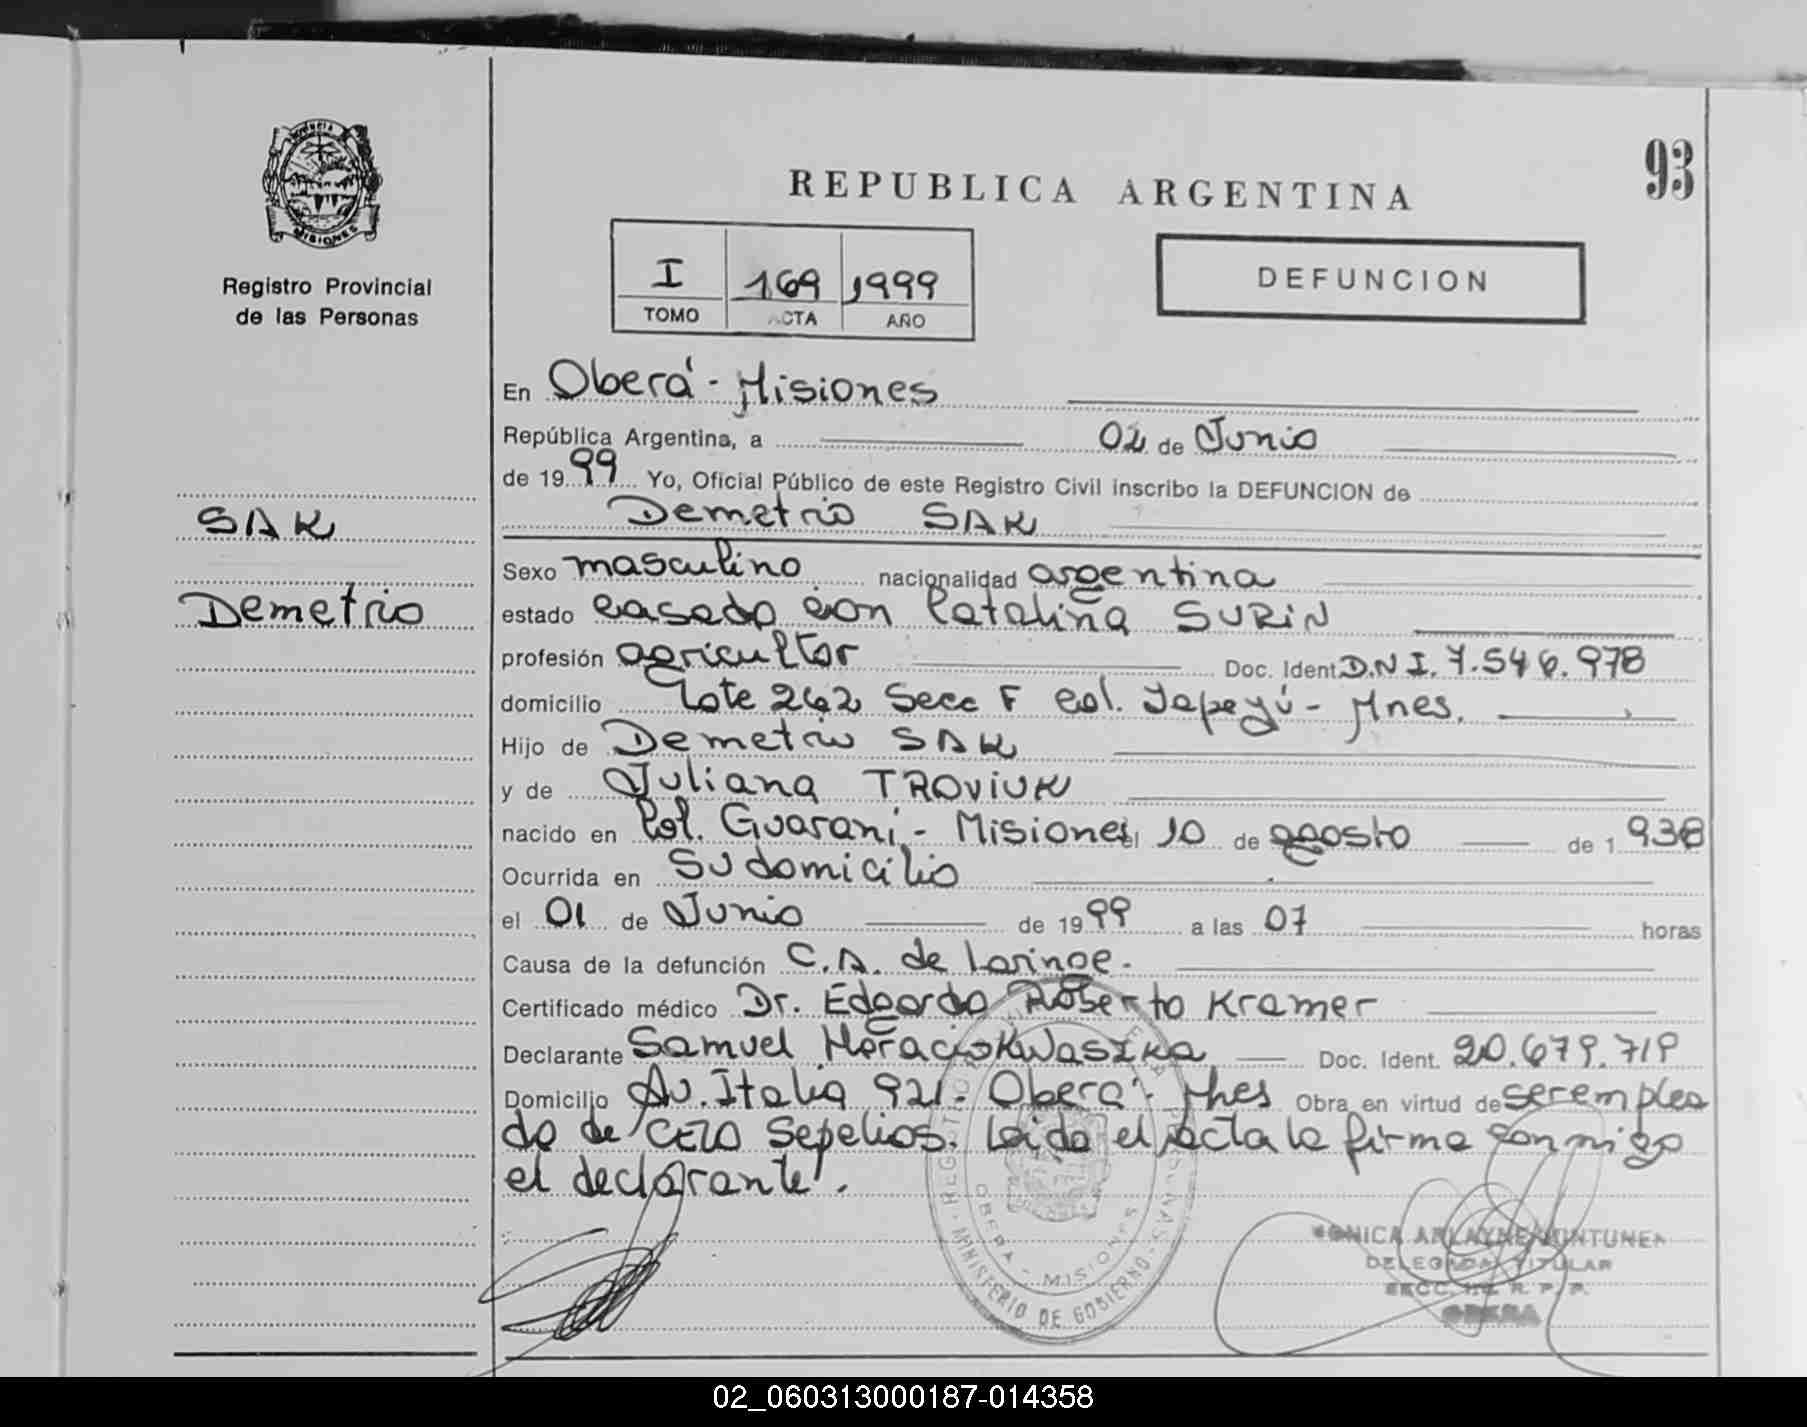 93
REPUBLICA ARGENTINA
PROVINCIA
MISIONES
Registro Provincial
de las Personas
I 169 1999
TOMO ACTA AÑO
DEFUNCION
En Oberá - Misiones
República Argentina, a 02 de Junio
de 1999 Yo, Oficial Público de este Registro Civil inscribo la DEFUNCION de
Demetrio SAK
SAK
Demetrio
Sexo masculino nacionalidad argentina
estado casado con Catalina SURIN
profesión agricultor Doc. Ident. D.N I. 7.546.978
domicilio Lote 262 Secc F Col. Yapeyú - Mnes.
Hijo de Demetrio SAK
y de Juliana TROVIUK
nacido en Col. Guaraní - Misiones el 10 de agosto de 1938
Ocurrida en Su domicilio
el 01 de Junio de 1999 a las 07 horas
Causa de la defunción C.A. de laringe.
Certificado médico Dr. Edgardo Roberto Kramer
Declarante Samuel Horacio Kwaszka Doc. Ident. 20.679.719
Domicilio Av. Italia 921 - Oberá - Mnes Obra en virtud de ser emplea
do de CELO Sepelios. Leída el acta la firma conmigo
el declarante.
REGISTRO PERSONAS
OBERA - MISIONES
MINISTERIO DE GOBIERNO
MONICA ARLAYNE
DELEGADA TITULAR
SECC. R. P. P.
OBERA
02_060313000187-014358